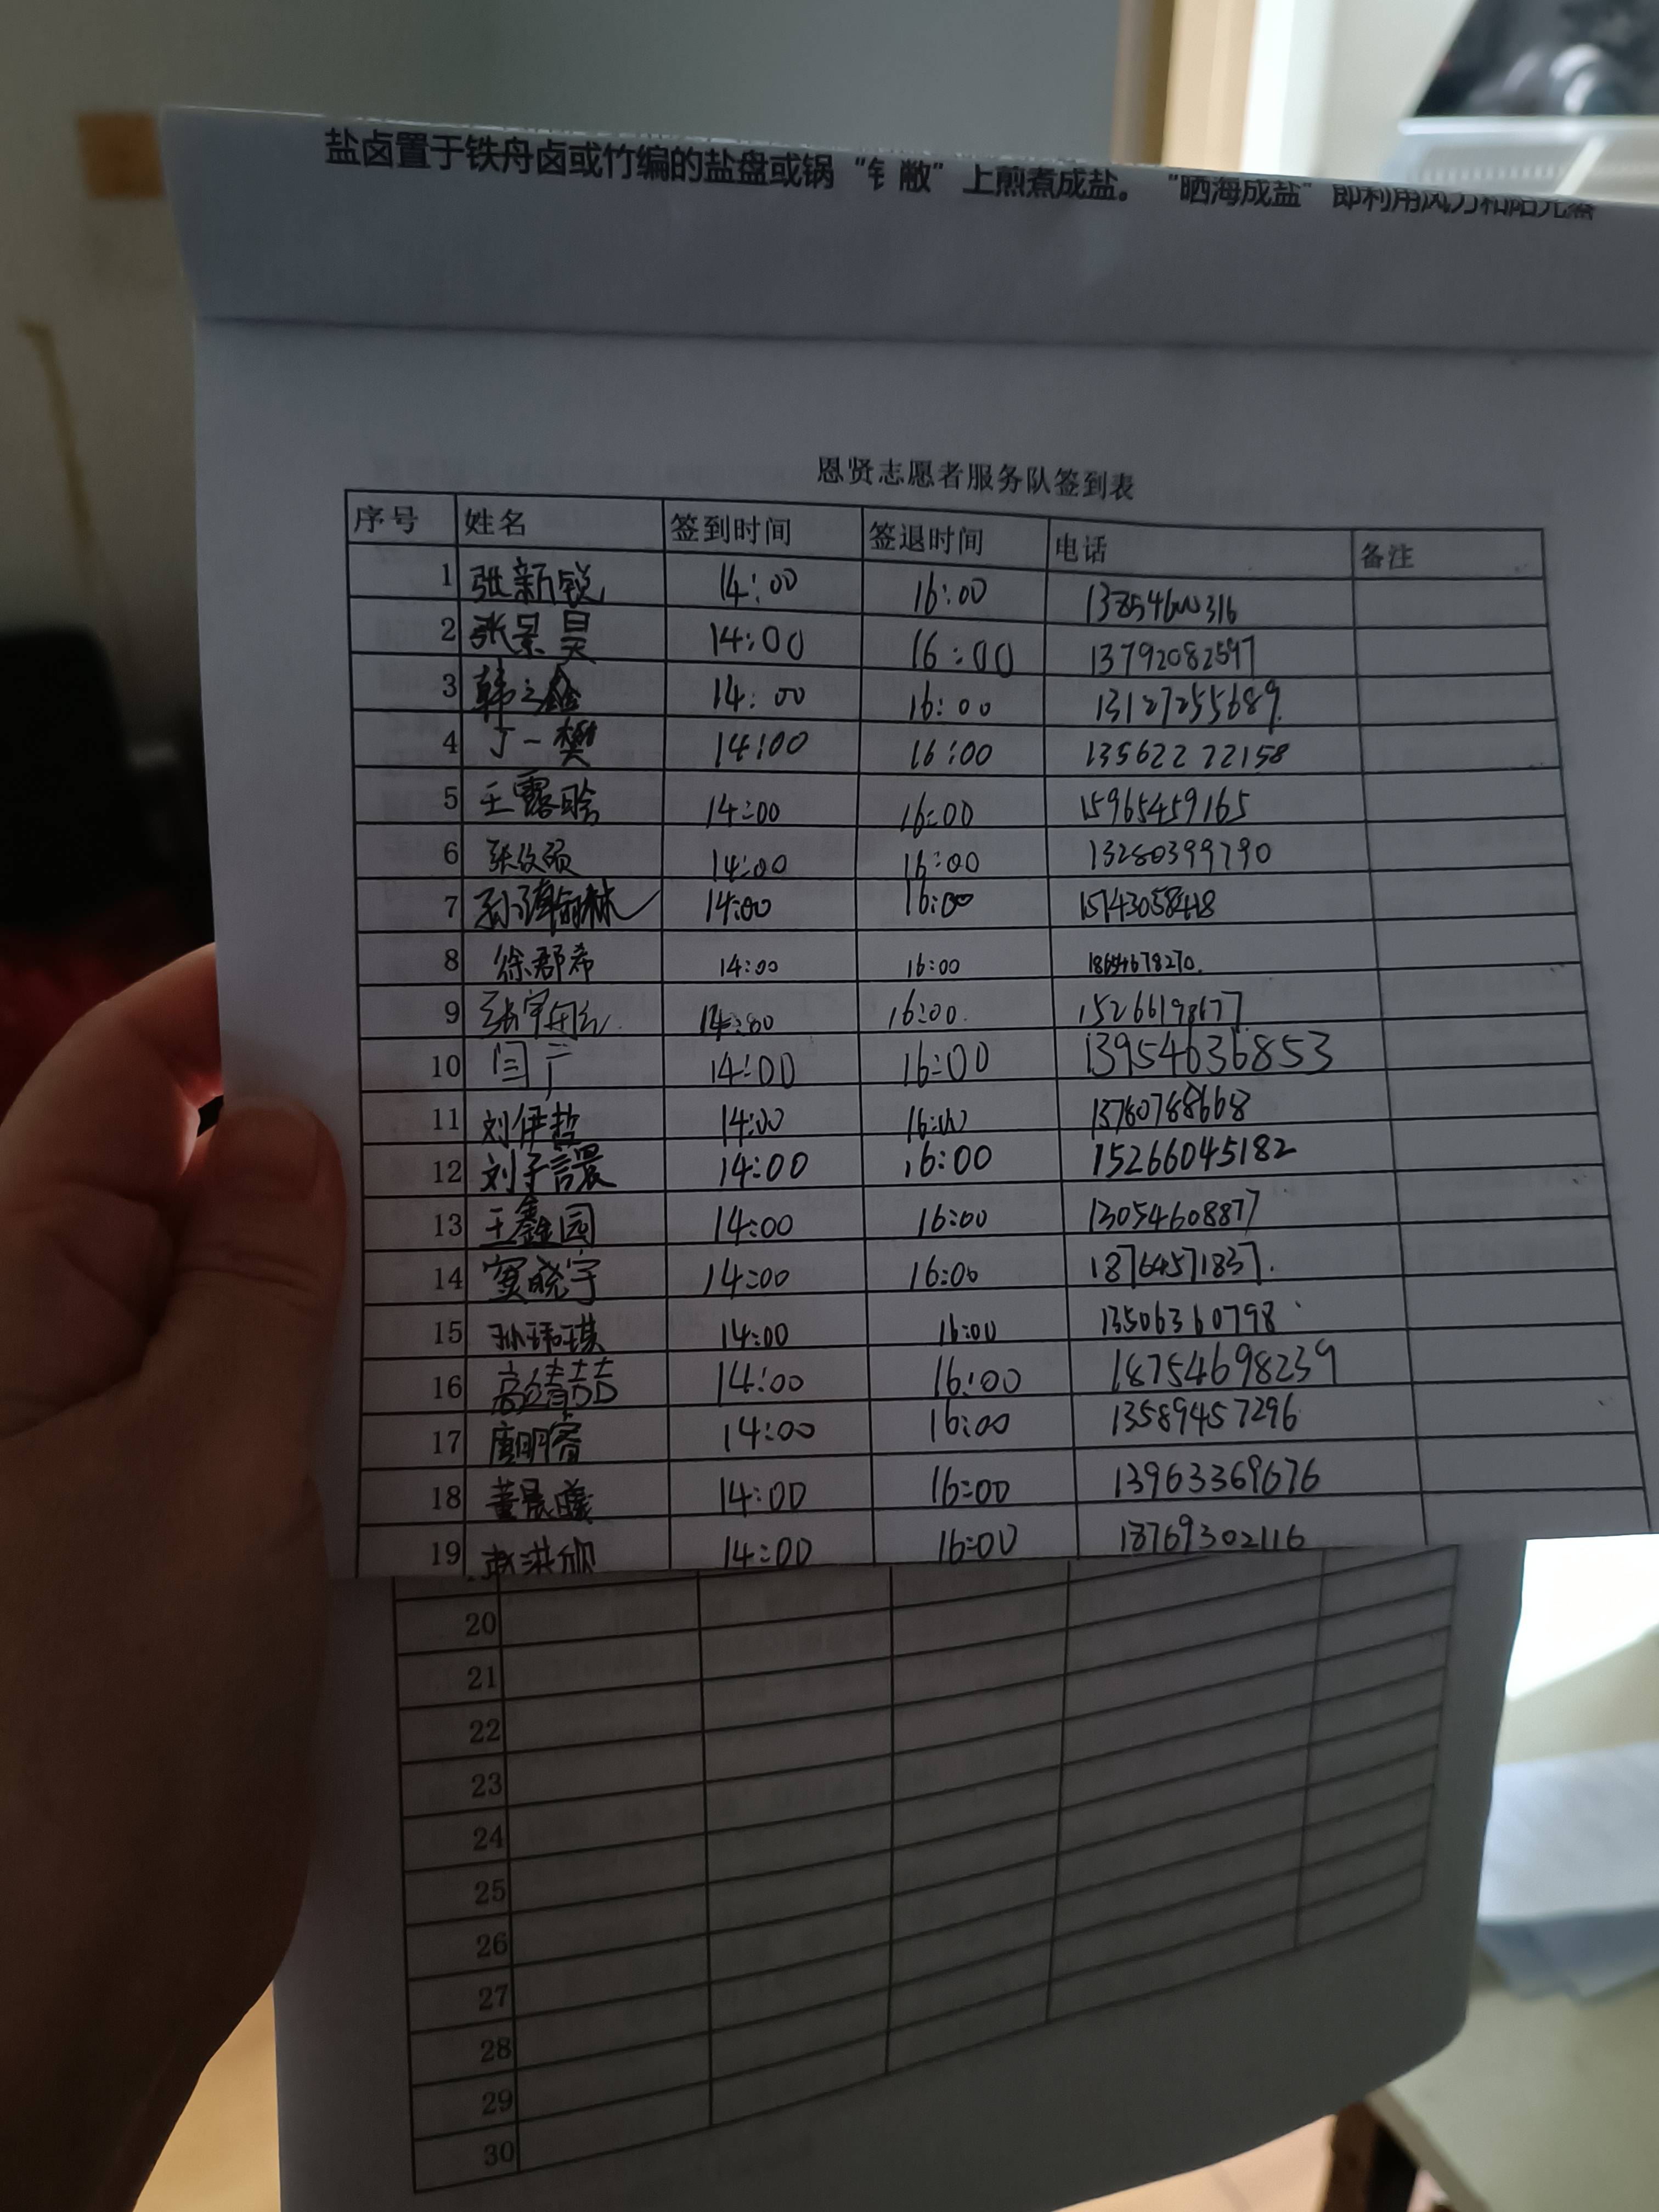 盐卤置于铁舟卤或竹编的盐盘或锅“钅敝”上煎煮成盐。“晒海成盐”即利用风力和阳光蒸
恩贤志愿者服务队签到表
序号 姓名 签到时间 签退时间 电话 备注
1 张新锐 14:00 16:00
2 张景昊 14:00 16:00 13792082597
3 韩之鑫 14:00 16:00 13127255689
4 丁一樊 14:00 16:00 13562272158
5 王露晗 14:00 16:00 15965459165
6 14:00 16:00 13280399790
7 14:00 16:00
8 徐郡希 14:00 16:00 18654678270
9 14:00 16:00 15266198677
10 闫广 14:00 16:00 13954636853
11 刘伊哲 14:00 16:00 13780788668
12 刘子 14:00 16:00 15266045182
13 王鑫园 14:00 16:00 13054608877
14 窦晓宇 14:00 16:00 18764571837
15 孙玮琪 14:00 16:00 13506360798
16 高靖喆 14:00 16:00 18754698239
17 唐明睿 14:00 16:00 13589457296
18 董晨曦 14:00 16:00 13963369676
19 赵洪欣 14:00 16:00 18769302116
20
21
22
23
24
25
26
27
28
29
30